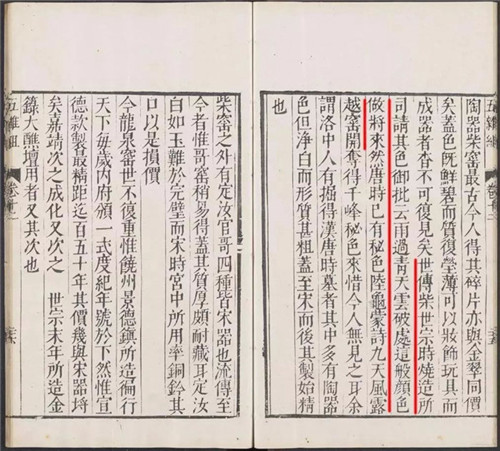 陶器柴窰最古今人得其碎片亦與金翠同價
矣蓋色既鮮碧而質復瑩薄可以妝飾玩具而
成器者杳不可復見矣世傳柴世宗時燒造所
司請其色御批云雨過青天雲破處這般顏色
做將來然唐時已有秘色陸龜蒙詩九天風露
越窰開奪得千峰秘色來惜今人無見之耳余
謂洛中人有掘得漢唐時墓者其中多有陶器
色但淨白而形質甚粗蓋至宋而後其製始精
也
柴窰之外有定汝官哥四種皆宋器也流傳至
今者惟哥窰稍易得蓋其質厚頗耐藏耳定汝
白如玉難於完璧而宋時宮中所用率銅鈐其
口以是損價
今龍泉窰世不復重惟饒州景德鎮所造徧行
天下每歲內府頒一式度紀年號於下然惟宣
德款製最精距迄百五十年其價幾與宋器埒
矣嘉靖次之成化又次之 世宗末年所造金
籙大醮壇用者又其次也
五雜組 卷十二